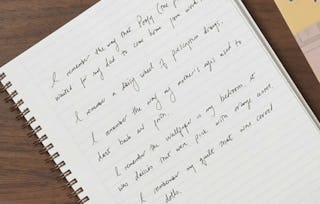 I remember the way that Poofy (the p
waited for my dad to come home from work.
I remember a daily wheel of prescription drugs.
I remember the way my mother's eyes used to
dart back and forth.
I remember the wallpaper in my bedroom. It
was daisies that were pink with orange
I remember my quilt that was covered
dolls.